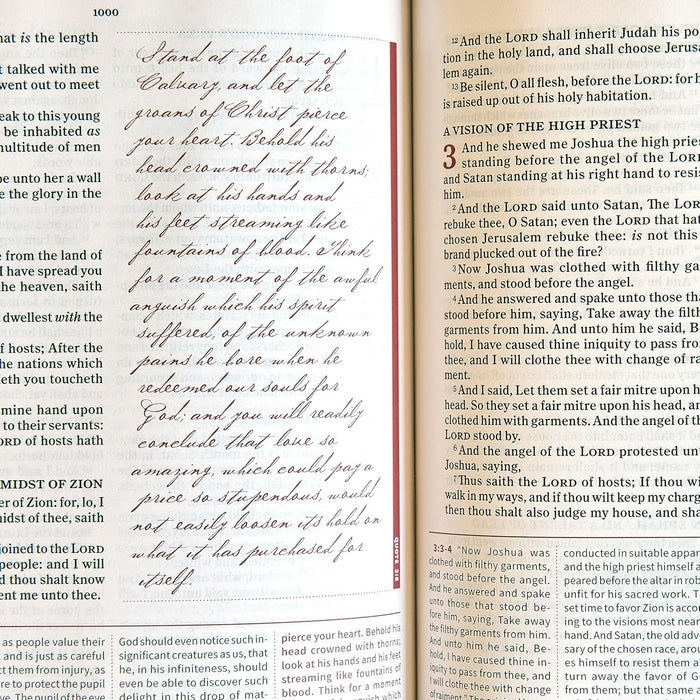 1000
hat is the length
t talked with me
went out to meet
eak to this young
be inhabited as
nultitude of men
be unto her a wall
e the glory in the
e from the land of
I have spread you
the heaven, saith
dwellest with the
f hosts; After the
he nations which
eth you toucheth
mine hand upon
to their servants:
ORD of hosts hath
MIDST OF ZION
er of Zion: for, lo, I
idst of thee, saith
joined to the LORD
people: and I will
d thou shalt know
ent me unto thee.
Stand at the foot of
Calvary, and let the
groans of Christ pierce
your heart. Behold his
head crowned with thorns;
look at his hands and
his feet streaming like
fountains of blood. Think
for a moment of the awful
anguish which his spirit
suffered, of the unknown
pains he bore when he
redeemed our souls for
God; and you will readily
conclude that love so
amazing, which could pay a
price so stupendous, would
not easily loosen its hold on
what it has purchased for
itself.
QUOTE 316
as people value their
and is just as careful
ct them from injury, as
re to protect the pupil
e. The pupil of the eye
God should even notice such in-
significant creatures as us, that
he, in his infiniteness, should
even be able to discover such
delight in this drop of mat-
pierce your heart. Behold his
head crowned with thorns;
look at his hands and his feet
streaming like fountains of
blood. Think for a moment
12 And the LORD shall inherit Judah his po
tion in the holy land, and shall choose Jerus
lem again.
13 Be silent, O all flesh, before the LORD: for h
is raised up out of his holy habitation.
A VISION OF THE HIGH PRIEST
3 And he shewed me Joshua the high pries
standing before the angel of the LORD
and Satan standing at his right hand to resis
him.
2 And the LORD said unto Satan, The LOR
rebuke thee, O Satan; even the LORD that hat
chosen Jerusalem rebuke thee: is not this
brand plucked out of the fire?
3 Now Joshua was clothed with filthy ga
ments, and stood before the angel.
4 And he answered and spake unto those th
stood before him, saying, Take away the filth
garments from him. And unto him he said, B
hold, I have caused thine iniquity to pass fro
thee, and I will clothe thee with change of ra
ment.
5 And I said, Let them set a fair mitre upon h
head. So they set a fair mitre upon his head, an
clothed him with garments. And the angel of th
LORD stood by.
6 And the angel of the LORD protested un
Joshua, saying,
7 Thus saith the LORD of hosts; If thou wi
walk in my ways, and if thou wilt keep my charg
then thou shalt also judge my house, and sha
3:3-4 "Now Joshua was
clothed with filthy garments,
and stood before the angel.
And he answered and spake
unto those that stood be-
fore him, saying, Take away
the filthy garments from him.
And unto him he said, Be-
hold, I have caused thine in-
iquity to pass from thee, and
I will clothe thee with change
of raiment."
conducted in suitable appar
and the high priest himself a
peared before the altar in rob
unfit for his sacred work. Th
set time to favor Zion is acco
ing to the visions most nea
hand. And Satan, the old adv
sary of the chosen race, arou
es himself to resist them
turn away the favor of
from